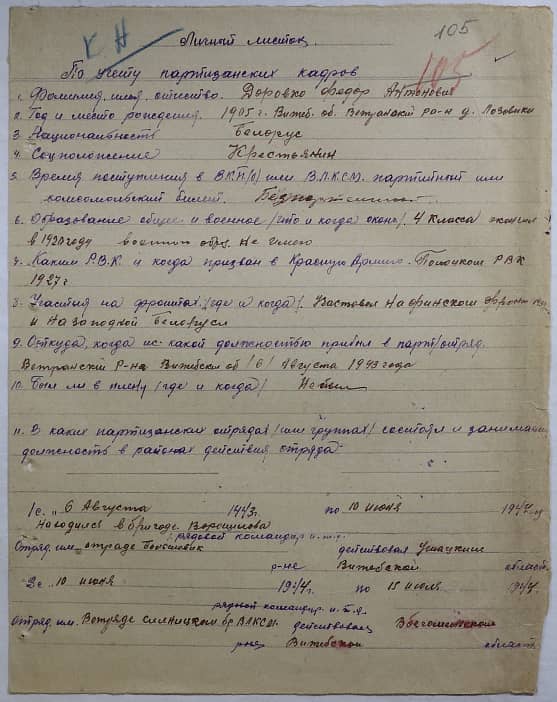 105
К Н
Личный листок
105
По учету партизанских кадров
1. Фамилия, имя, отчество. Доровко Федор Антонович
2. Год и место рождения. 1905 г. Витеб. об. Ветринский ра-н д. Лозовики
3. Национальность Белорус
4. Соцположение Крестьянин
5. Время поступления в ВКП(б) или ВЛКСМ. партийный или
комсомольский билет. Безпартийный
6. Образование общее и военное /что и когда оконч/. 4 класса
в 1920 году военного обр. не имею
7. Каким Р.В.К. и когда призван в Красную Армию. Полоцком РВК
1927 г
8. Участия на фронтах /где и когда/. Участвовал На финском фронте
и На западной Белорусси
9. Откуда, когда и с какой должностью прибыл в парт/отряд.
Ветринский Р-на Витебская об /6/ Августа 1943 года
10. Был ли в плену /где и когда/ Не был
11. В каких партизанских отрядах /или группах/ состоял и занимаемая
должность в районах действия отряда
1 с. „ 6 Августа 1943 г. по 10 июня 1944
Находился в бригаде Ворошилова
рядовой командир и.т.я.
Отряд. им. отраде Большевик действовал Ушацким
р-не Витебской област.
2 с. „ 10 июня 1944 г. по 15 июля 1944
рядовой командир и.т.я
Отряд. им. Вотряде бр ВЛКСМ. действовал
р-не Витебской област.